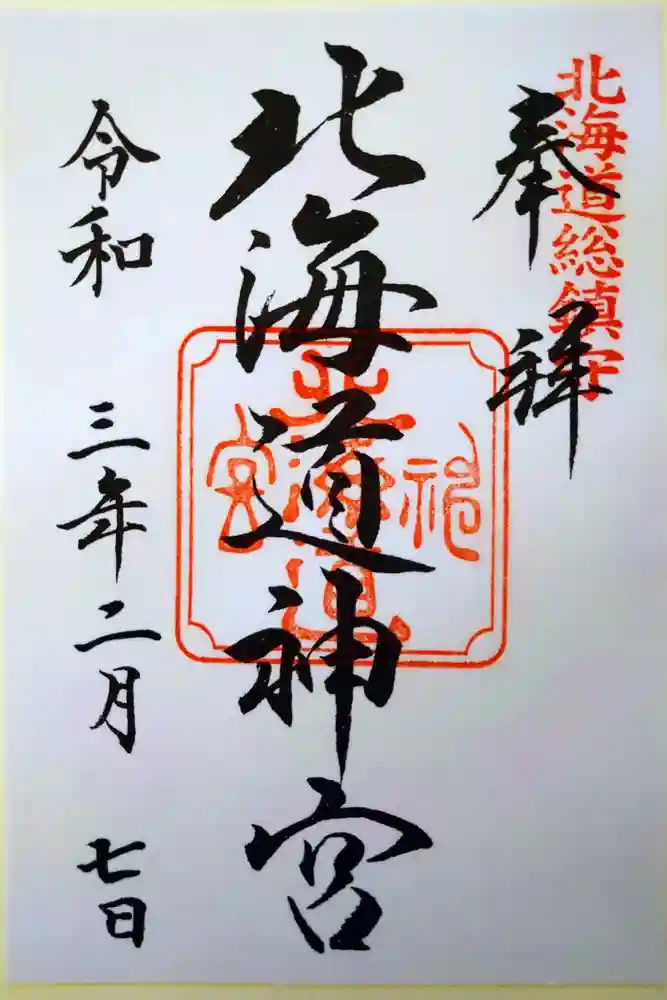 北海道総鎮守
奉拝
北海道神宮
北海道神宮
令和三年二月七日